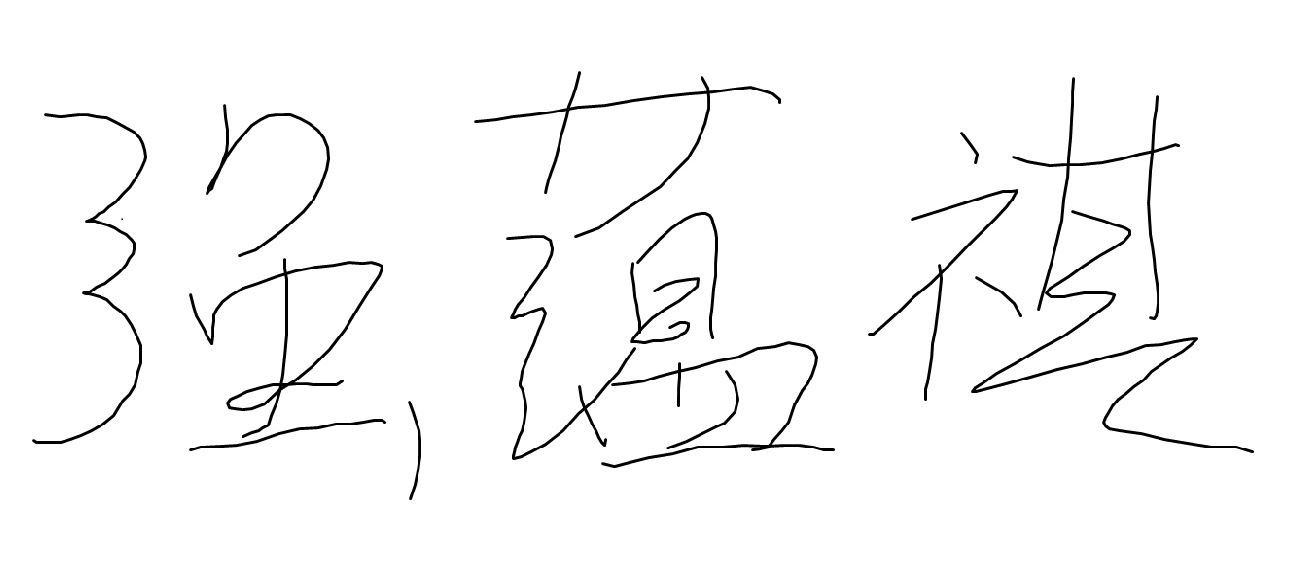 强蕴祺